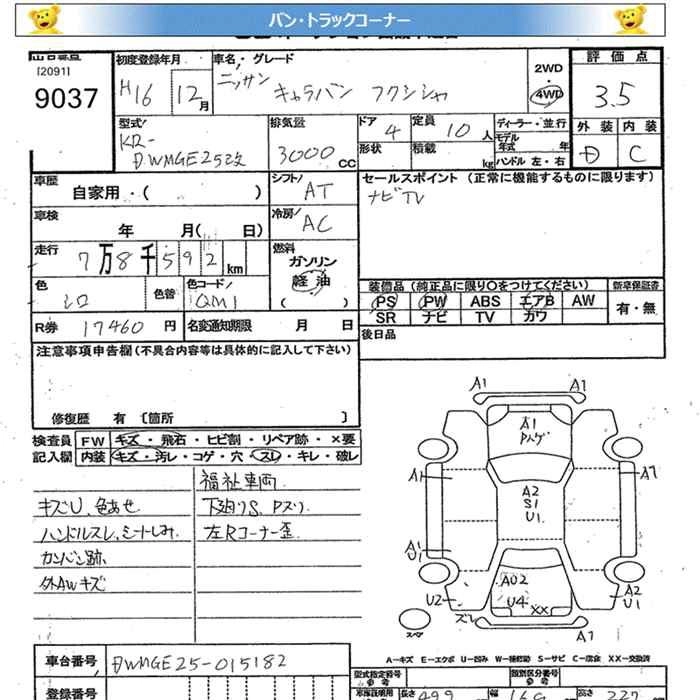 バン・トラックコーナー
[2091]
9037
初度登録年月
H16 12月
車名／グレード
ニッサン キャラバン フクシシャ
2WD
・
4WD
評価点
3.5
外装 内装
D C
型式
KR-
DWMGE25改
排気量
3000 CC
ドア 4
形状
定員 10 人
積載 kg
ディーラー・並行
モデル年式 年
ハンドル 左・右
車歴
自家用・( )
シフト AT
セールスポイント (正常に機能するものに限ります)
ナビTV
車検 年 月( 日)
冷房 AC
走行 7万8千592km
燃料
ガソリン
軽油
( )
色 シロ
色替
色コード QM1
装備品 (純正品に限り○をつけてください)
PS PW ABS エアB AW
SR ナビ TV カワ
新車保証書
有・無
R券 17460 円
名変通知期限 月 日
後日品
注意事項申告欄 (不具合内容等は具体的に記入して下さい)
修復歴 有 [箇所 ]
検査員記入欄
FW キズ・飛石・ヒビ割・リペア跡・×要
内装 キズ・汚レ・コゲ・穴・スレ・キレ・破レ
福祉車両
キズU、色あせ 下廻りS、Pズリ
ハンドルスレ、シートしみ 左Rコーナー歪
カンバン跡
外AWキズ
A1 A1
A1
Pハゲ
A1 A1
A2
S1
U1
A1
U1
AU2
U4 XX
U2 ズレ
A2
U1
スペア
A1
A－キズ E－エクボ U－凹み W－補修跡 S－サビ C－腐食 XX－交換済
車台番号 DWMGE25-015182
登録番号
型式指定番号
類別区分番号
長さ 499 幅 169 高さ 227